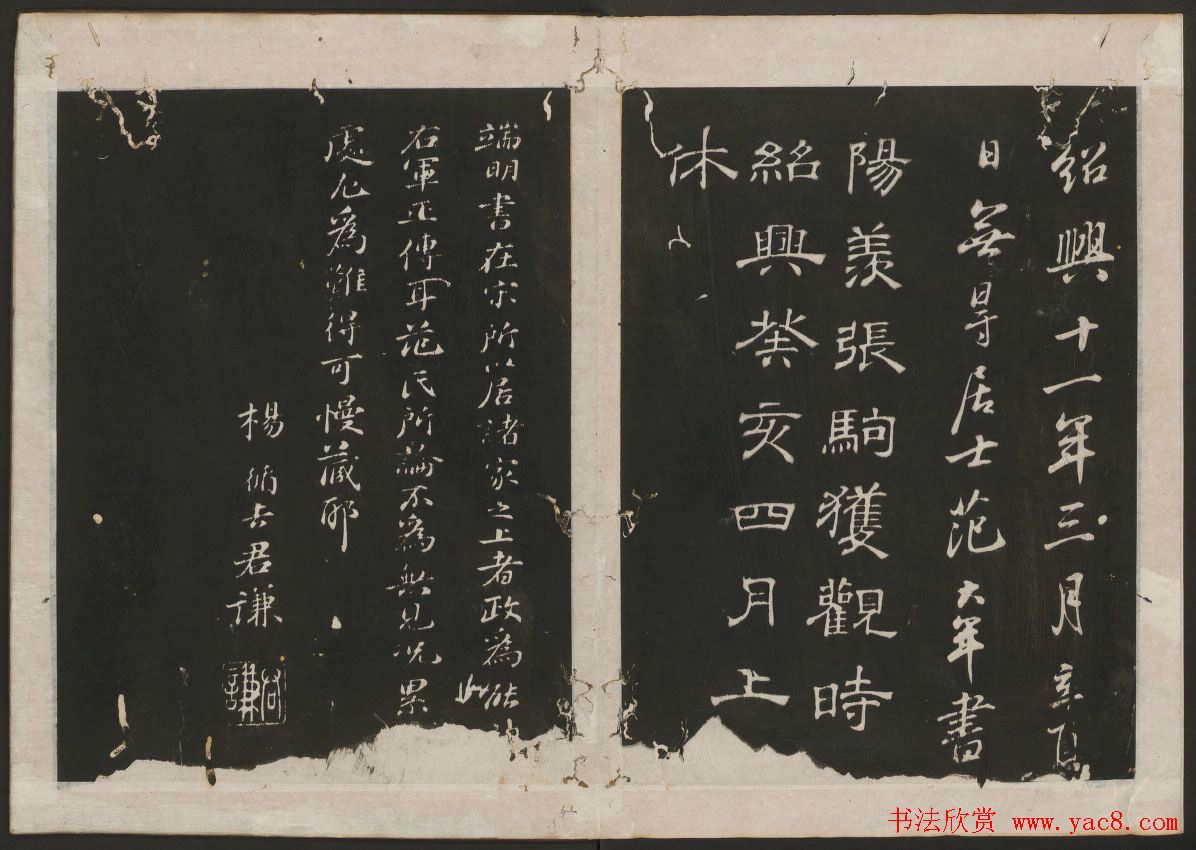 紹興十一年三月辛
日無㝵居士范大年書
陽羨張駒獲觀時
紹興癸亥四月上
休
端明書在宋所以居諸家之上者政為能
此
右軍正傳耳范氏所論不為無見況累
處尤為難得可慢藏耶
楊循吉君謙
君謙
书法欣赏 www.yac8.com